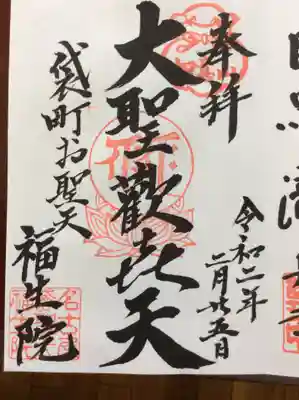 奉拝
令和二年
二月廿五日
大聖歡喜天
袋町お聖天
福生院